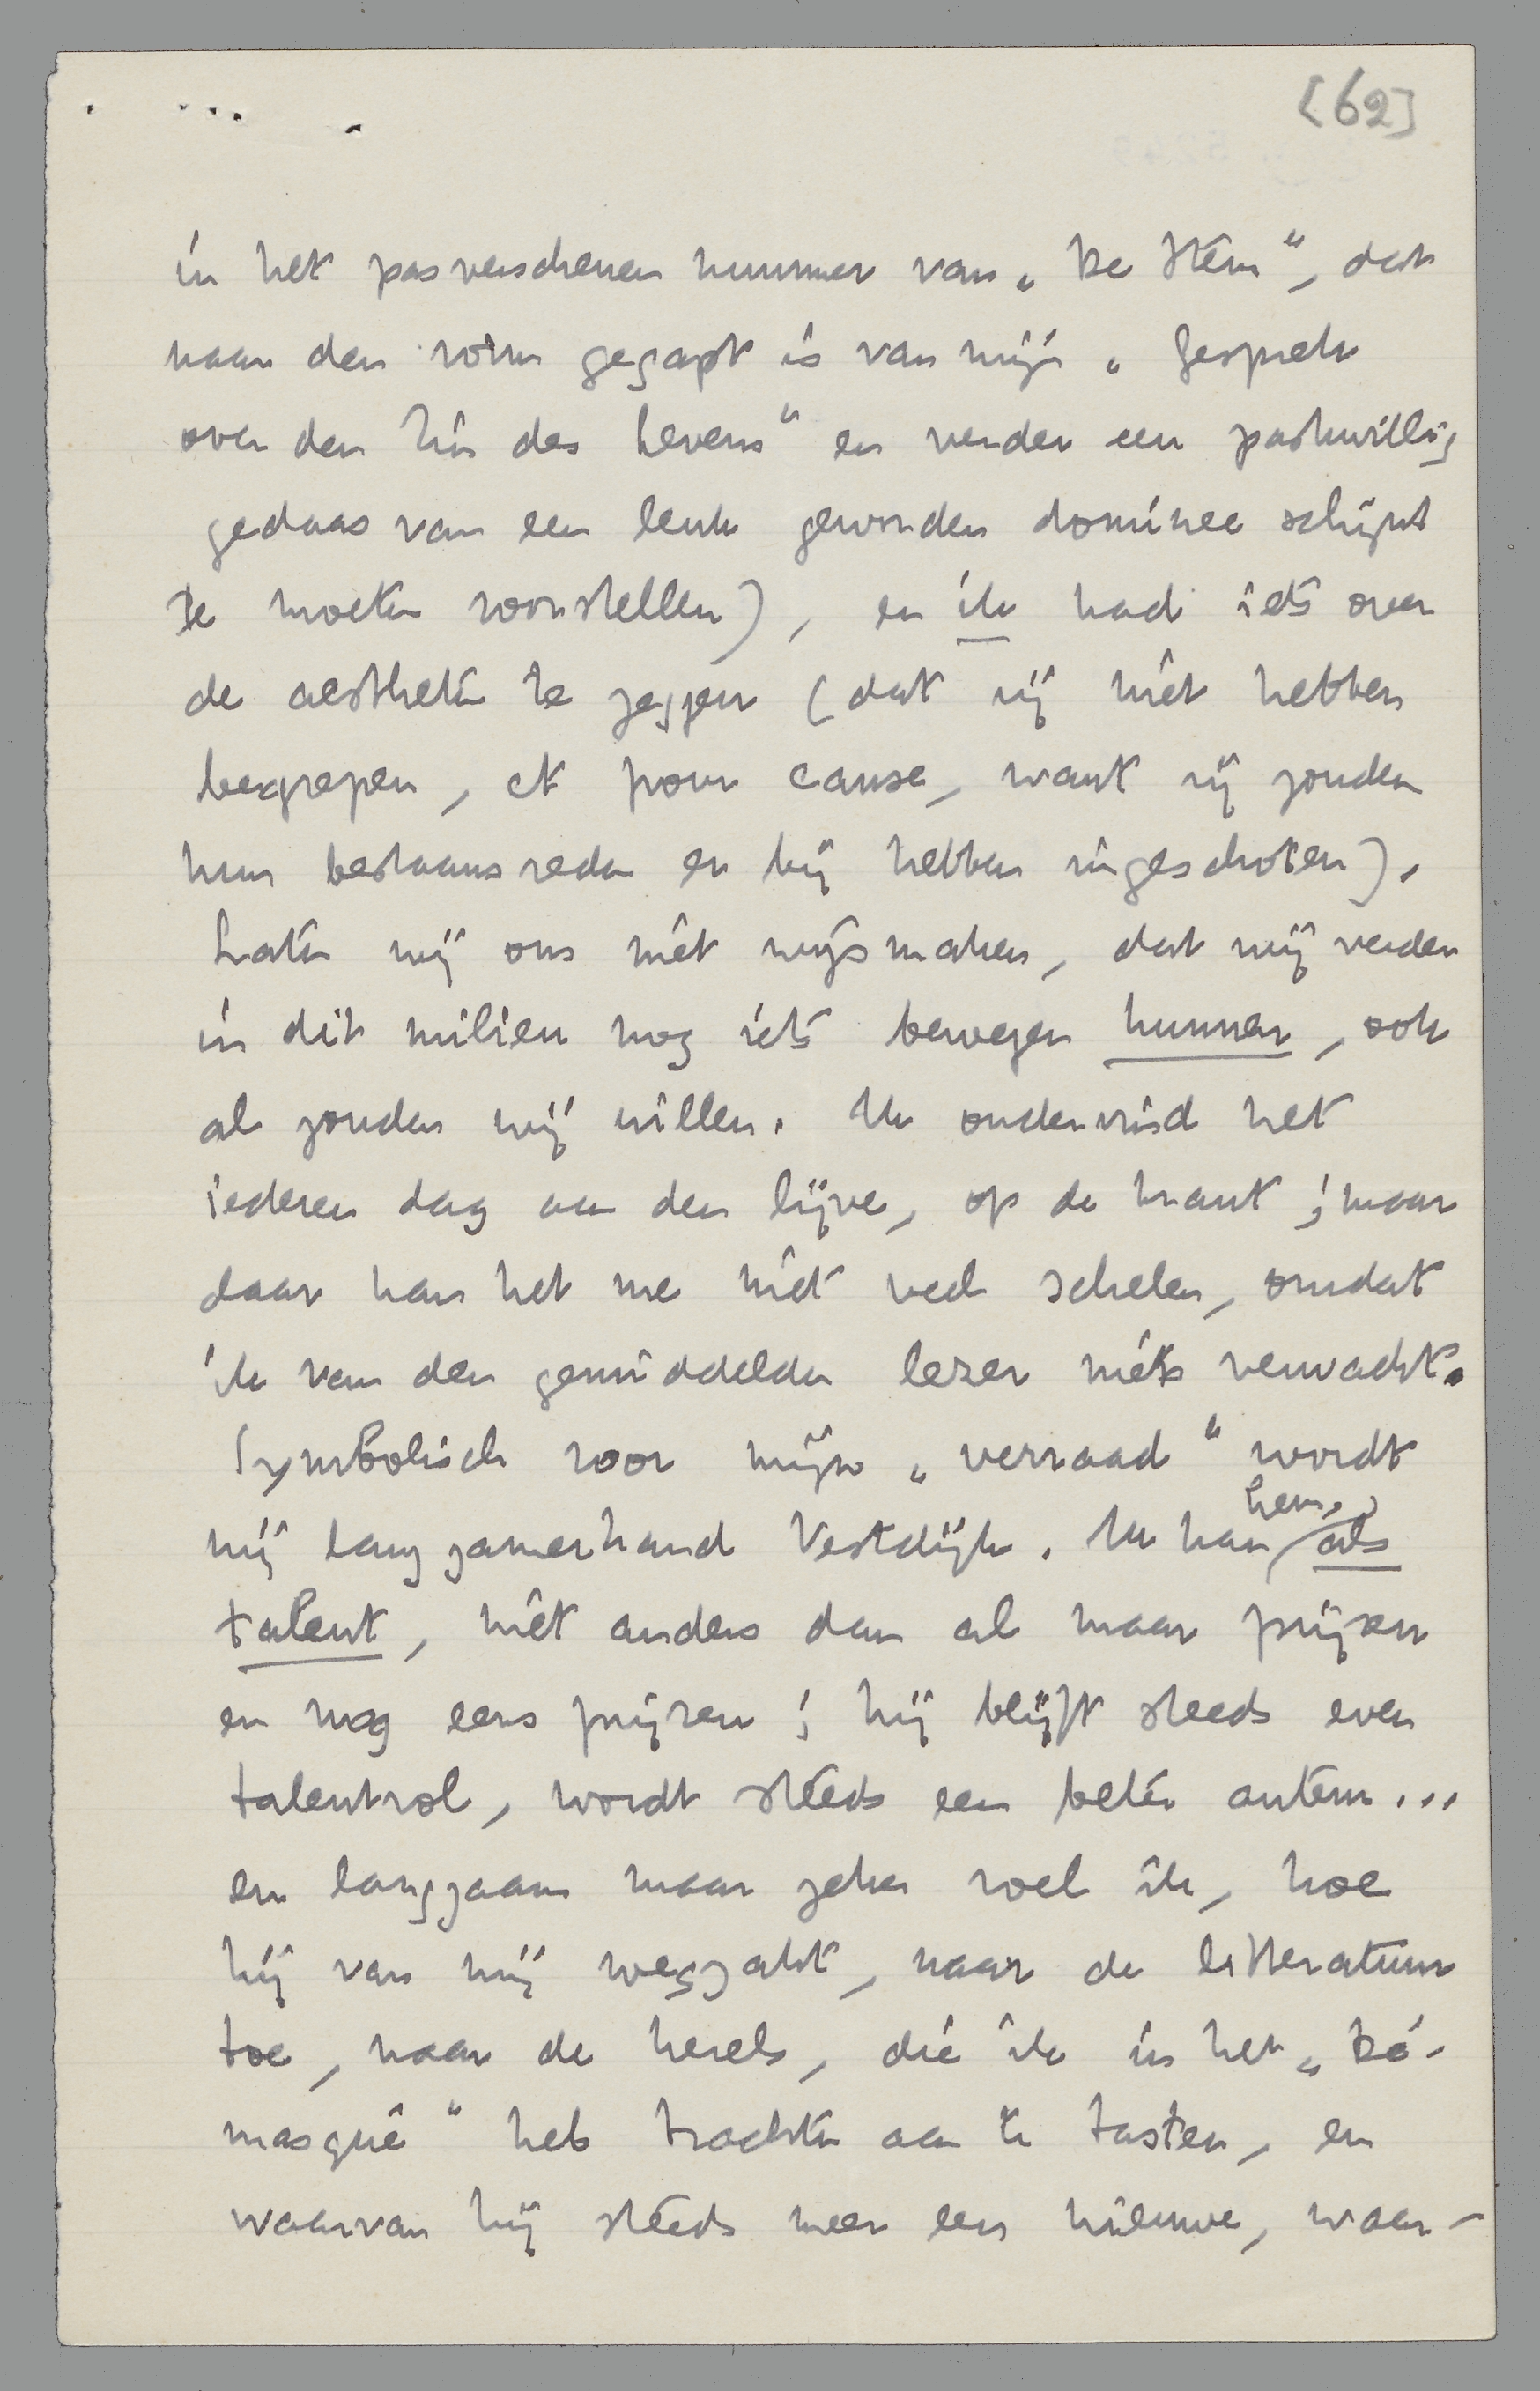 [62]
in het pas verschenen nummer van „De Stem", dat
naar den vorm gegapt is van mijn „Gesprek
over den Zin des Levens" en verder een paskwillig
gedaas van een leuk geworden dominee schijnt
te moeten voorstellen), en ik had iets over
de aestheten te zeggen (dat zij niet hebben
begrepen, et pour cause, want zij zouden
hun bestaansreden er bij hebben ingeschoten).
Laten wij ons niet wijsmaken, dat wij verder
in dit milieu nog iets bewegen kunnen, ook
al zouden wij willen. Ik ondervind het
iederen dag aan den lijve, op de krant; maar
daar kan het me niet veel schelen, omdat
ik van den gemiddelden lezer niets verwacht.
Symbolisch voor mijn „verraad" wordt
mij langzamerhand Vestdijk. Ik kan hem, als
talent, niet anders dan al maar prijzen
en nog eens prijzen; hij blijft steeds even
talentvol, wordt steeds een beter auteur...
en langzaam maar zeker voel ik, hoe
hij van mij wegzakt, naar de litteratuur
toe, naar de kerels, die ik in het „Dé-
masqué" heb trachten aan te tasten, en
waarvan hij steeds meer een nieuwe, waar-